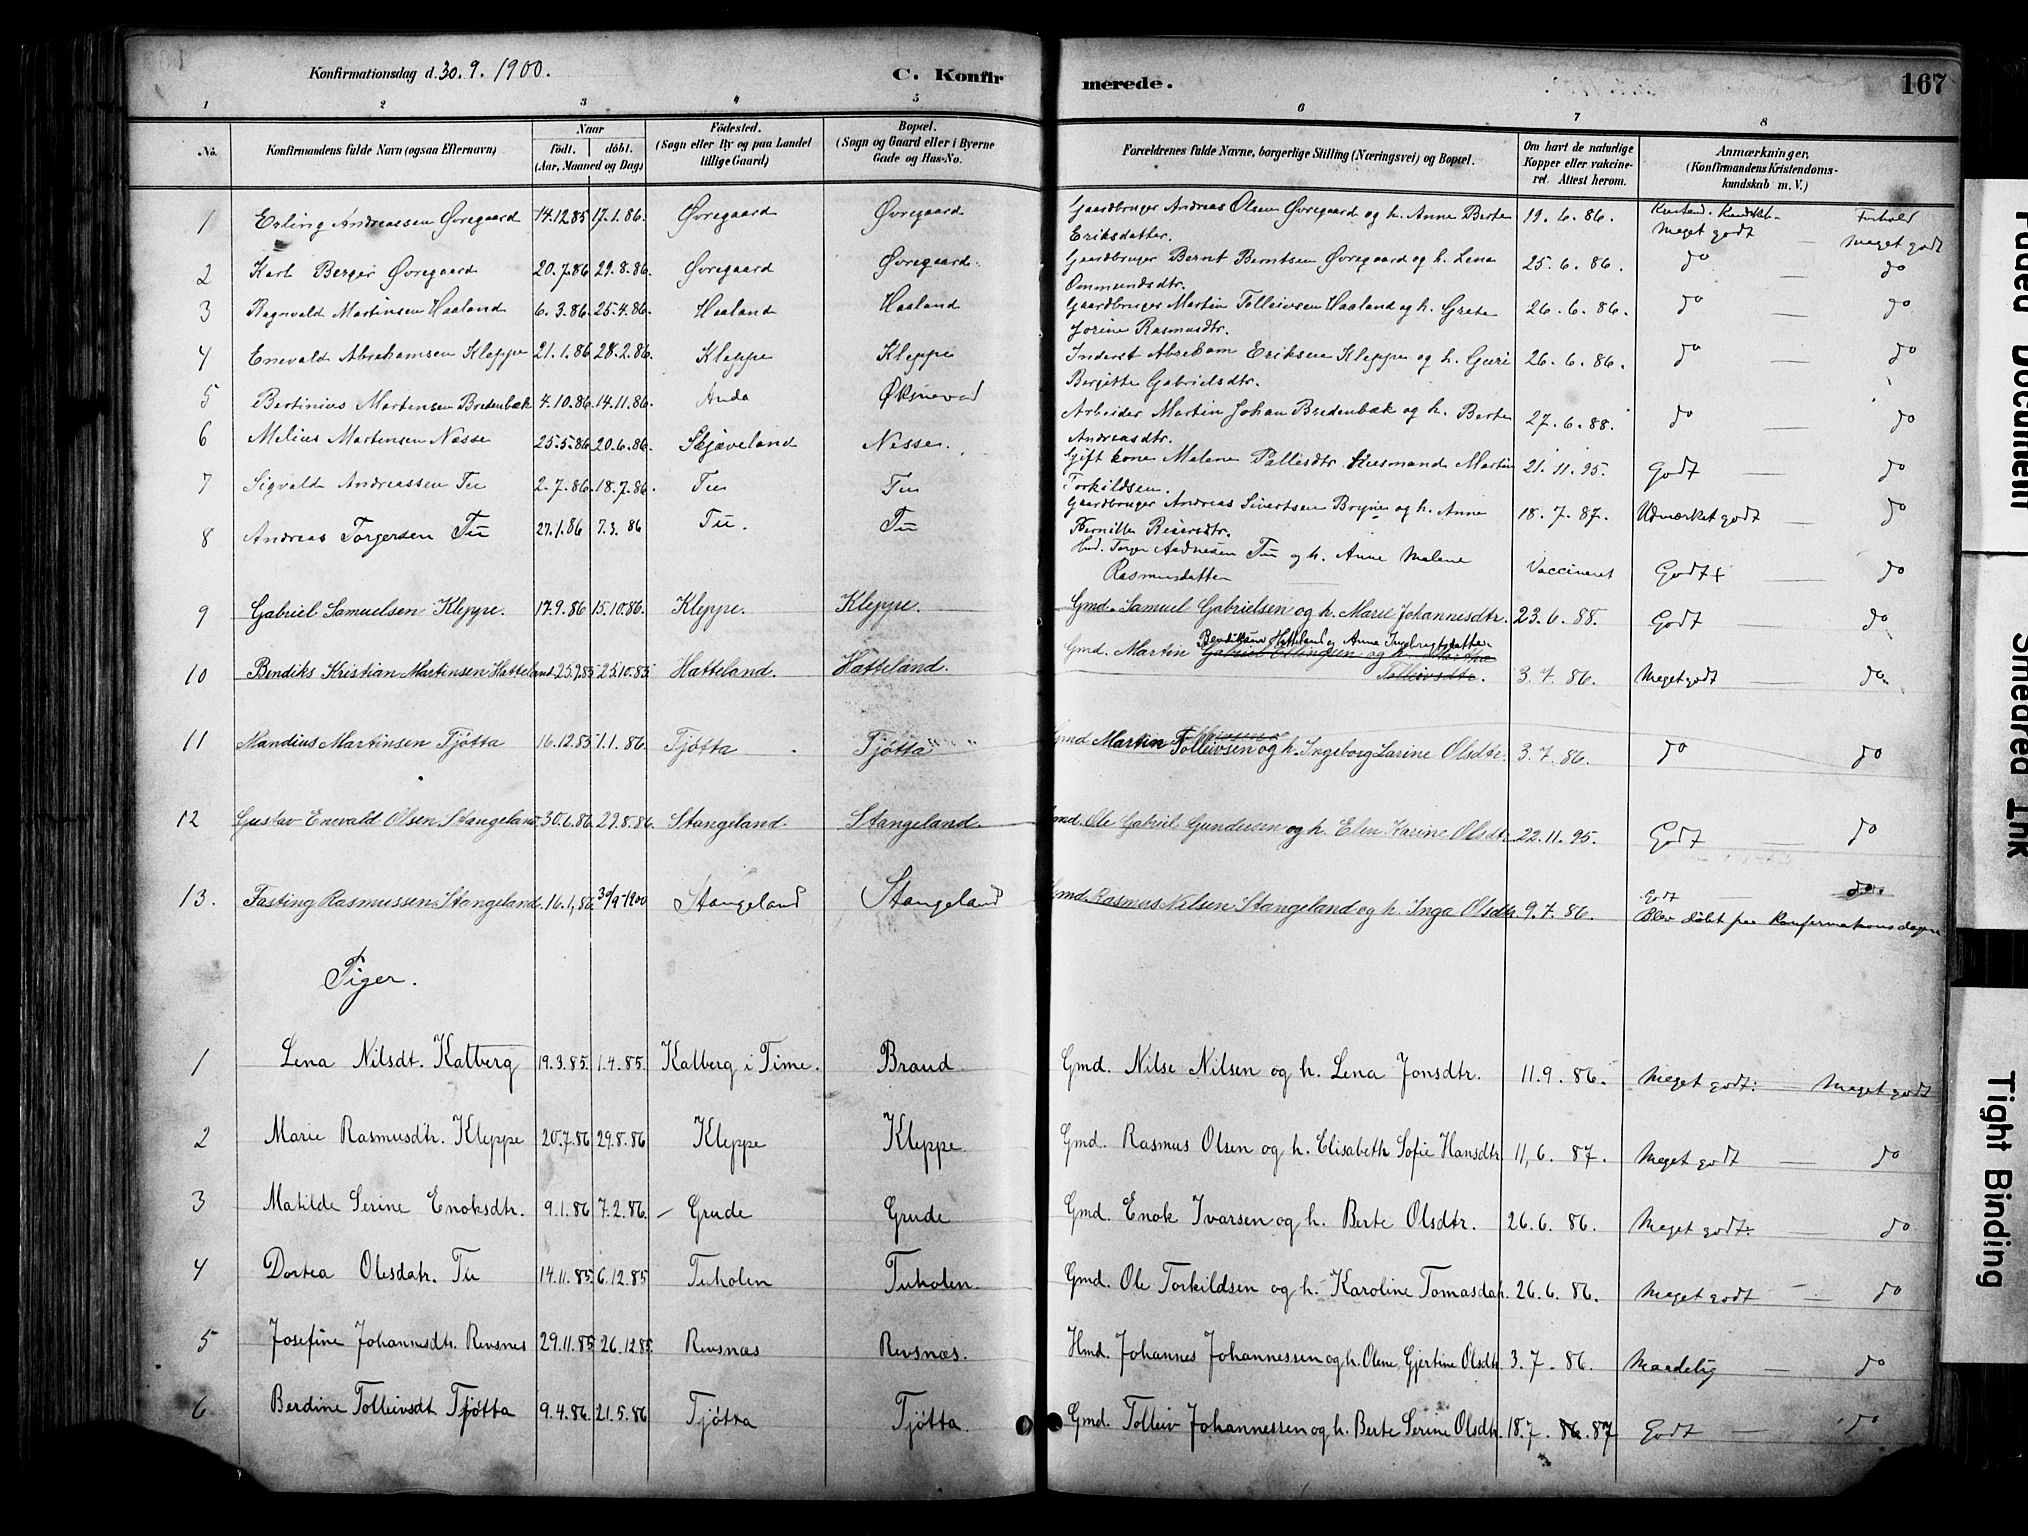 Konfirmationsdag d. 30. 9. 1900. C. Konfir merede. 167
1 2 3 4 5 6 7 8
No. Konfirmandens fulde Navn (ogsaa Efternavn) Naar født. døbt. (Aar, Maaned og Dag) Fødested. (Sogn eller By og paa Landet tillige Gaard) Bopæl. (Sogn og Gaard eller i Byerne Gade og Hus-No. Forældrenes fulde Navne, borgerlige Stilling (Næringsvei) og Bopæl. Om havt de naturlige Kopper eller vakcineret. Attest herom. Anmærkninger, (Konfirmandens Kristendomskundskab m. V.)
1 Erling Andreassen Øvregaard 14.12.85 17.1.86. Øvregaard Øvregaard Gaardbruger Andreas Olsen Øvregaard og h. Anne Berte 19. 6. 86. Kristend. Kundsk. Forhold
Eriksdatter. Meget godt — meget godt
2 Karl Berger Øvregaard 20.7.86 29.8.86. Øvregaard Øvregaard. Gaardbruger Bernt Berntsen Øvregaard og h. Lena 25. 6. 86. do — do
Ommundsdtr.
3 Ragnvald Martinsen Haaland 6.3.86. 25.4.86. Haaland Haaland Gaardbruger Martin Tolleivsen Haaland og h. Grete 26. 6. 86. do — do
Jorine Rasmusdtr.
4 Enevald Abrahamsen Kleppe 21.1.86 28.2.86. Kleppe Kleppe Inderst Abraham Eriksen Kleppe og h. Guri 26. 6. 86. do — do
Bergitte Gabrielsdtr.
5 Bertinius Martensen Bredenbæk 4.10.86. 14.11.86. Anda Øksnevad Arbeider Martin Johan Bredenbæk og h. Berte 27. 6. 88. do — do
Andreasdtr.
6 Melius Martensen Næsse 25.5.86 20.6.86. Skjæveland Næsse. Gift kone Malene Pallesdtr. Husmand Martin 21. 11. 95. Godt — do
Torkildsen.
7 Sigvald Andreassen Tu 2.7.86. 18.7.86. Tu Tu Gaardbruger Andreas Sivertsen Bryne og h. Anne 18. 7. 87. Udmærket godt — do
Pernille Beiersdtr.
8 Andreas Torgersen Tu 27.1.86 7.3. 86 Tu. Tu Hmd. Torger Aadnesen Tu og h. Anne Malene Vaccineret Godt+ — do
Rasmusdatter
9 Gabriel Samuelsen Kleppe. 17.9.86 15.10.86. Kleppe. Kleppe. Gmd. Samuel Gabrielsen og h. Marie Johannesdtr. 23. 6. 88. Godt — do
Bendiksen Hatteland og Anne Ingebregtsdatter
10 Bendiks Kristian Martinsen Hatteland 25.9.85 25.10.85 Hatteland. Hatteland. Gmd. Martin Gabriel Ellingsen og h. Tolleivsdtr. 3. 7. 86. Meget godt — do
11 Mandius Martinsen Tjøtta 16.12.85 1.1.86. Tjøtta Tjøtta Gmd Martin Tolleivsen og h. Ingeborg Larine Olsdtr. 3. 7. 86. do do
12 Gustav Enevald Olsen Stangeland 30.6.86 29.8.86. Stangeland. Stangeland. Gmd. Ole Gabriel Gundersen og h. Elen Karine Olsdtr. 22. 11. 95. Godt — do
13. Fasting Rasmussen Stangeland. 16.1,86 30/9-1900 Stangeland Stangeland Gmd. Rasmus Nilsen Stangeland og h. Inga Olsdtr. 9. 7. 86. Godt — do.
Blev døbt paa Konfirmationsdagen
Piger.
1 Lena Nilsdt. Kalberg 19.3.85. 1.4.85. Kalberg i Time. Braud. Gmd. Nilse Nilsen og h. Lena Jonsdtr. 11. 9. 86. Meget godt. — Meget godt
2 Marie Rasmusdtr. Kleppe 20.7.86 29.8.86 Kleppe Kleppe. Gmd. Rasmus Olsen og h. Elisabeth Sofie Hansdtr. 11, 6. 87. Meget godt — do
3 Matilde Serine Enoksdtr. 9.1.86 7.2.86. Grude Grude Gmd. Enok Ivarsen og h. Berte Olsdtr. 26. 6. 86. Meget godt. — do
4 Dortea Olesdatr. Tu 14.11.85. 6.12.85 Tuholen Tuholen. Gmd. Ole Torkildsen og h. Karoline Tomasdatr. 26. 6. 86. Meget godt — do
5 Josefine Johannesdtr. Revsnes 29.11.85 26.12.85. Revsnæs Revsnæs. Hmd. Johannes Johannessen og h. Olene Gjertine Olsdtr. 3. 7. 86. Maadelig — do
6 Berdine Tolleivsdt Tjøtta 9.4.86. 21.5.86 Tjøtta Tjøtta. Gmd. Tolleiv Johannessen og h. Berte Serine Olsdtr. 18. 7. 86. 87 Godt — do
Faded Document
Smeared Ink
Tight Binding